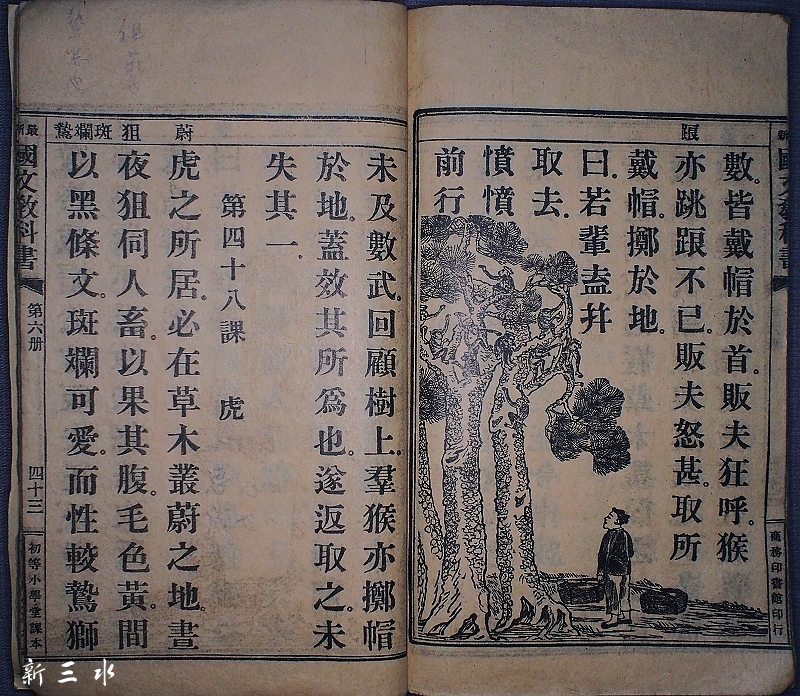 踉
數。皆戴帽於首。販夫狂呼。猴
亦跳踉不已。販夫怒甚。取所
戴帽。擲於地。
曰。若輩盍幷
取去。
憤憤
前行
商務印書館印行
蔚
狙
斑斕
鷙
未及數武。回顧樹上。羣猴亦擲帽
於地。蓋效其所爲也。遂返取之。未
失其一。
第四十八課 虎
虎之所居。必在草木叢蔚之地。晝
夜狙伺人畜。以果其腹。毛色黃。間
以黑條文。斑斕可愛。而性較鷙。獅
最新國文教科書
第六册
四十三
初等小學堂課本
新三水